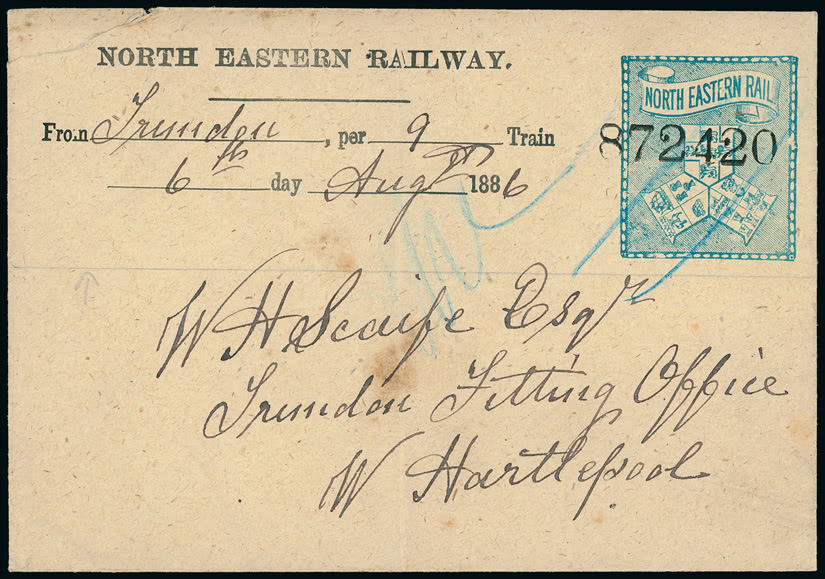 NORTH EASTERN RAILWAY.
NORTH EASTERN RAIL
872420
From Trimdon, per 9 Train
6th day Augst 1886
W H Scaife Esqr
Trimdon Fitting Office
W Hartlepool